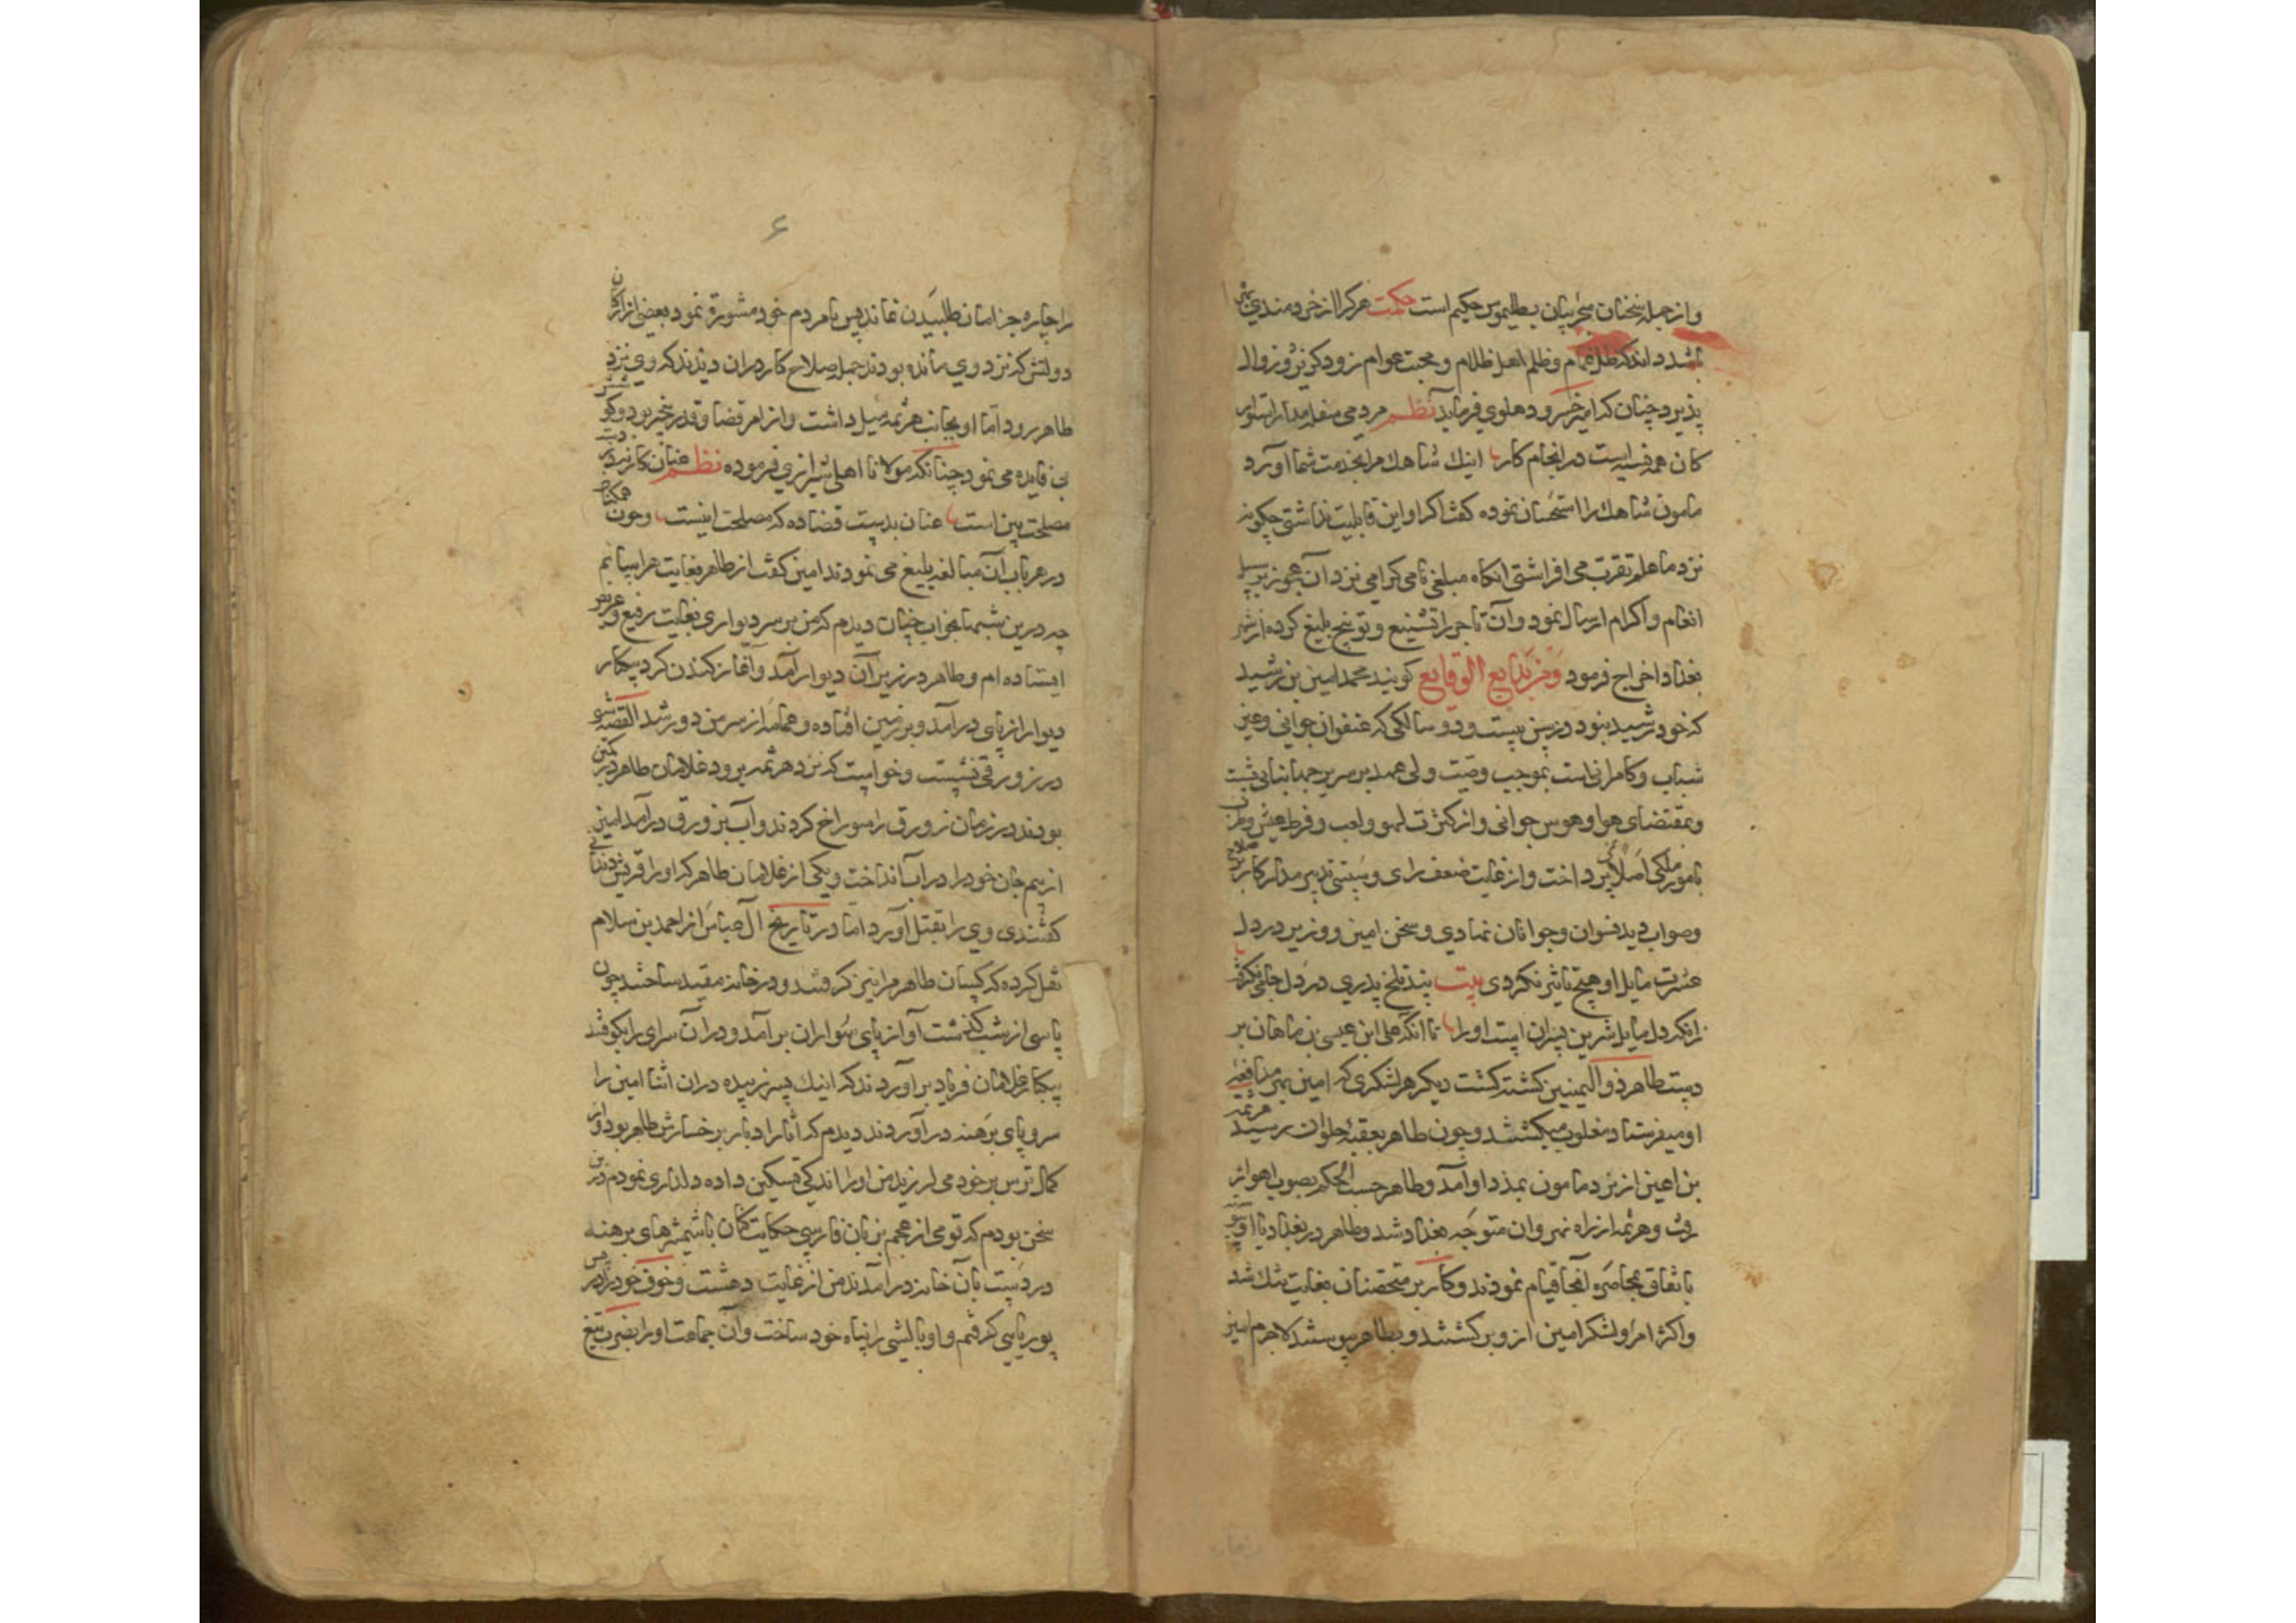 و از جمله سخنان سحربیان بطلیموس حکیم است حکمت هر کرا از خردمندی بهره
باشد داند که ظل غمام و ظلم اهل ظلام و محبت عوام زود گریز و زوال
پذیرد چنان که امیر خسرو دهلوی فرماید نظم مردمی
کان همه فسیه است در انجام کار اینک شاهک مرا بخدمت شما آورد
مامون شاهک را استحسان نموده گفت اگر او این قابلیت نداشتی چگونه
نزد ما علم تقرب می افراشتی انکاه مبلغی نامی کرامی نزد آن عجوز بر سبیل
انعام و اکرام ارسال نمود و آن تاجر را تشنیع و توبیخ بلیغ کرده از شهر
بغداد اخراج فرمود و من بدایع الوقایع کویند محمد امین بن رشید
که خود رشید نبود در سن بیست و دو سالکی که عنفوان جوانی و عین
شباب و کامرانی است بموجب وصیت ولی عهد بر سریر جهانبانی نشست
و بمقتضای هوا و هوس جوانی و از کثرت لهو و لعب و فرط عیش و طرب
بامور ملکی اصلا نمی پرداخت و از غایت ضعف رای و سستی تدبیر مدار کار بر صلاح
و صواب دید نسوان و جوانان نهادی و سخن امین و وزیر در دل
عشرت مایل او هیچ تاثیر نکردی بیت پند تلخ پدری در دل جانی نگرفت
زانکه دل مایل شیرین پسران است او را تا آنکه علی ابن عیسی بن ماهان بر
دست طاهر ذو الیمینین کشته کشت دیکر هر لشکری که امین بمر مدافعه
او میفرستاد مغلوب میکشتند و چون طاهر بعقبه حلوان رسید هرثمه
بن اعین از نزد مامون بمدد او آمد و طاهر حسب الحکم بصوب اهواز
رفت و هرثمه از راه نهروان متوجه بغداد شد و طاهر در بغداد با او پیوست
باتفاق بمحاصره آنجا قیام نمودند و کار بر متحصنان بغایت تنک شد
و اکثر امرا و لشکر امین از وی برکشتند و بطاهر پیوستند لاجرم امین
۶
را چاره جز امان طلبیدن نماند پس با مردم خود مشورة نمود بعضی از ارکان
دولتش که نزد وی مانده بودند جمله صلاح کار در ان دیدند که وی نزد
طاهر رود اما او بجانب هرثمه میل داشت و از امر قضا و قدر بیخبر بود و کوشش
بی فایده می نمود چنانکه مولانا اهلی شیرازی فرموده نظم عنان کار نه در دست
مصلحت بین است عنان بدست قضا ده که مصلحت اینست و چون همکنان
در هر باب آن مبالغه بلیغ می نمودند امین کفت از طاهر بغایت هراسانم
چه درین شبها بخواب چنان دیدم که من بر سر دیواری بغایت رفیع و عریض
ایستاده ام و طاهر در زیر آن دیوار آمد و آغاز کندن کرد بیکبار
دیوار از پای در آمد و بر زمین افتاده و عمامه از سر من دور شد القصه شبی
در زورقی نشست و خواست که نزد هرثمه برود غلامان طاهر در کمین
بودند در زمان زورق را سوراخ کردند و آب بزورق در آمد امین
از بیم جان خود را در آب انداخت و یکی از غلامان طاهر که او را قریش دندانی
کفتندی وی را بقتل آورد اما در تاریخ آل عباس از احمد بن سلام
نقل کرده که کسان طاهر مرا نیز کرفتند و در خانه مقید ساختند چون
پاسی از شب کذشت آواز پای سواران بر آمد و در آن سرای را بکوفتند
بیکبار غلامان فریاد بر آوردند که اینک پسر زبیده در ان اثنا امین را
سر و پای برهنه در آوردند دیدم که آثار ادبار بر رخسارش ظاهر بود و از
کمال ترس بر خود می لرزید من او را اندکی تسکین داده دلداری نمودم درین
سخن بودم که قومی از عجم بزبان فارسی حکایت کنان با شمشیرهای برهنه
در دست بآن خانه در آمدند من از غایت دهشت و خوف خود را در پس
بوریایی کرفتم و او بالشی را پناه خود ساخت و آن جماعت او را بضرب تیغ